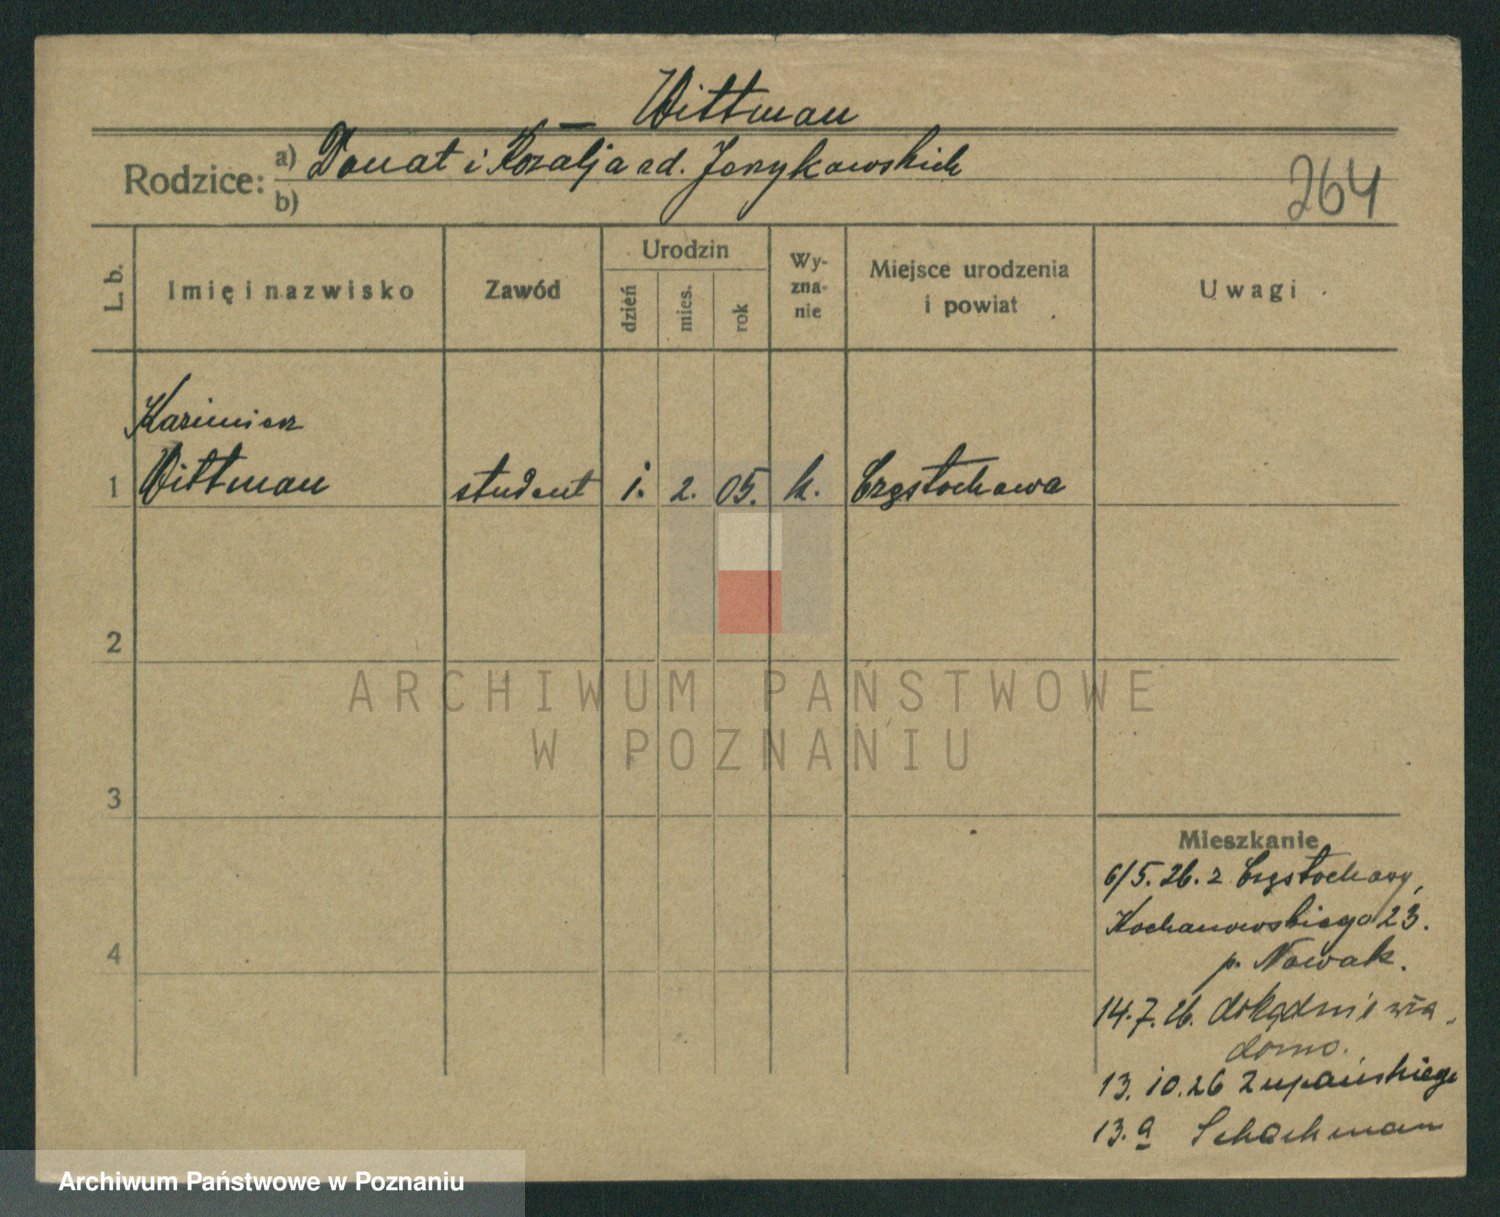 Wittman
Rodzice: a) Donat i Rozalja zd. Jerzykowskich
b)
264
L. b.
Imię i nazwisko
Zawód
Urodzin
dzień
mies.
rok
Wy-
zna-
nie
Miejsce urodzenia
i powiat
Uwagi
Kazimierz
1 Wittman student 1. 2. 05. k. Częstochowa
2
3
4
ARCHIWUM PAŃSTWOWE
W POZNANIU
Mieszkanie
6/5. 26. z Częstochowy,
Kochanowskiego 23.
p. Nowak.
14. 7. 26. dokąd nie wia-
domo.
13. 10. 26 Żupańskiego
13. a Schachman
Archiwum Państwowe w Poznaniu